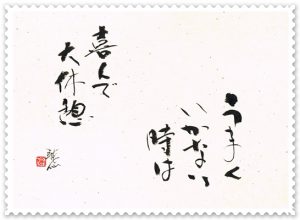 うまく
いかない
時は
喜んで
大休憩